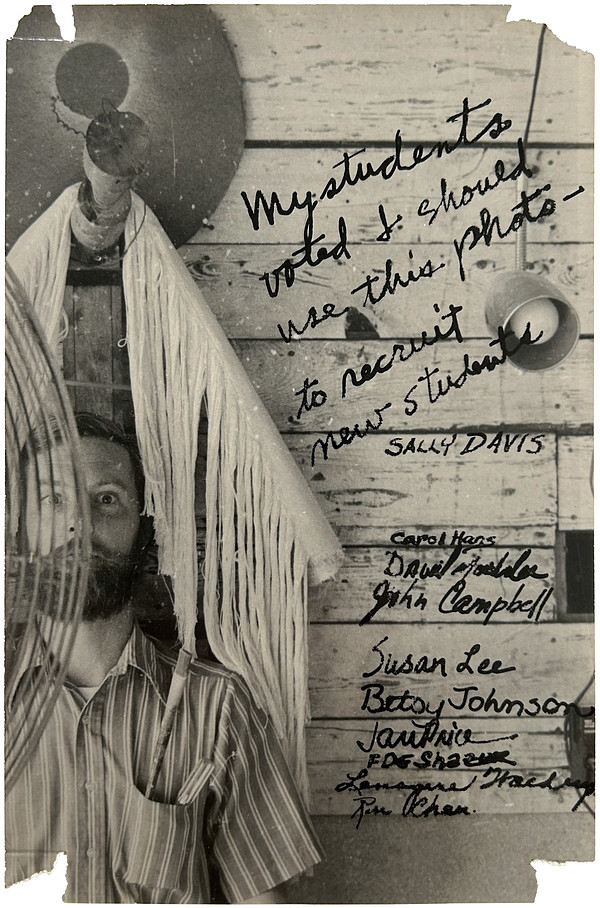 My students
voted I should
use this photo-
to recruit
new students
SALLY DAVIS
Carol Hans
David
John Campbell
Susan Lee
Betsy Johnson
Jan Price